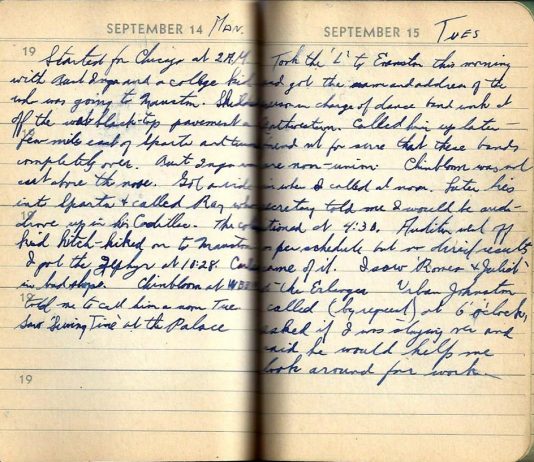 SEPTEMBER 14 Mon.
19
Started for Chicago at 2 A.M.
with Aunt Inga and a college kid
who was going to Mauston. She
off the wet black-top pavement a
few miles east of Sparta and turned
completely over. Aunt Inga was
cut above the nose. Got a ride
into Sparta & called Ray who
drove up in his Cadillac. The
had hitch-hiked on to Mauston
I got the Zephyr at 10:28. Car
in bad shape. Chinbloom at WBBM
told me to call him a noon Tue
Saw 'Swing Time' at the Palace
19
SEPTEMBER 15 Tues
Took the 'L' to Evanston this morning
and got the name and address of the
person in charge of dance band work at
Northwestern. Called him up later
and for sure that these bands
are non-union. Chinbloom was not
in when I called at noon. Later his
secretary told me I would be audi-
tioned at 4:30. Audition went off
as per schedule but no direct results
came of it. I saw 'Romeo & Juliet'
at the Erlanger. Urban Johnston
called (by request) at 6 o'clock,
asked if I was staying over and
said he would help me
look around for work.